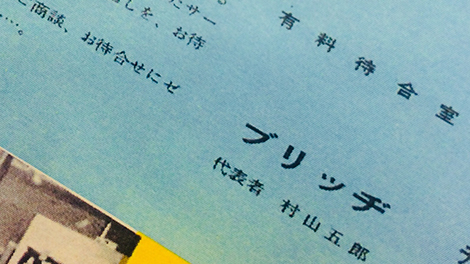 有料待合室
ブリッヂ
代表者 村山五郎
たサー
しを、お待
商談、お待合せにゼ